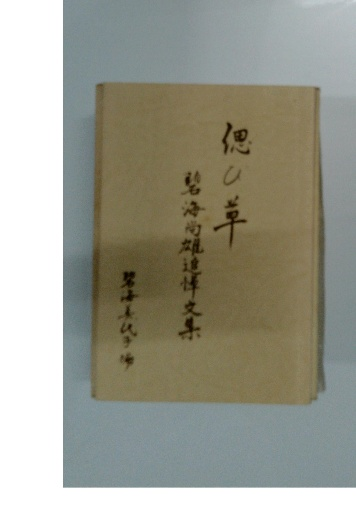 偲ひ草
碧海尚雄追悼文集
碧海美代子編